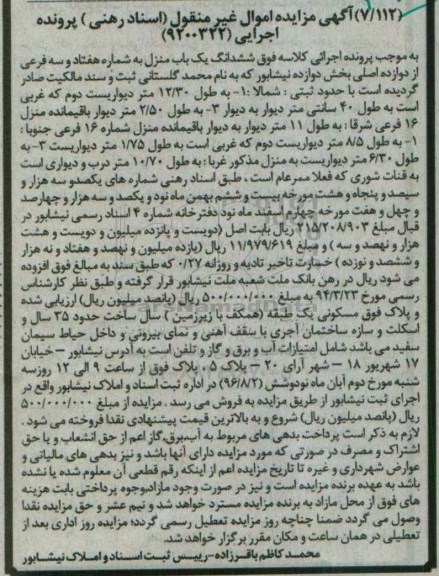 (۷/۱۱۲)آگهی مزایده اموال غیر منقول (اسناد رهنی ) پرونده
اجرایی (۹۲۰۰۳۲۲)
به موجب پرونده اجرائی کلاسه فوق ششدانگ یک باب منزل به شماره هفتاد و سه فرعی
از دوازده اصلی بخش دوازده نیشابور که به نام محمد گلستانی ثبت و سند مالکیت صادر
گردیده است با حدود ثبتی : شمالا :۱- به طول ۱۲/۳۰ متر دیواریست دوم که غربی
است به طول ۴۰ سانتی متر دیوار به دیوار ۳- به طول ۲/۵۰ متر دیوار باقیمانده منزل
۱۶ فرعی شرقا : به طول ۱۱ متر دیوار به دیوار باقیمانده منزل شماره ۱۶ فرعی جنوبا :
۱- به طول ۸/۵ متر دیواریست دوم که غربی است به طول ۱/۷۵ متر دیواریست ۳- به
طول ۶/۳۰ متر دیواریست به منزل مذکور غربا : به طول ۱۰/۷۰ متر درب و دیواری است
به قنات شوری که فعلا ممرعام است ، طبق اسناد رهنی شماره های یکصدو سه هزار و
سیصد و پنجاه و هشت مورخه بیست و ششم بهمن ماه نود و یکصد و سه هزار و چهارصد
و چهل و هفت مورخه چهارم اسفند ماه نود دفترخانه شماره ۴ اسناد رسمی نیشابور در
قبال مبلغ ۲۱۵/۲۰۸/۹۰۳ ریال بابت اصل (دویست و پانزده میلیون و دویست و هشت
هزار و نهصد و سه ) و مبلغ ۱۱/۹۷۹/۶۱۹ ریال (یازده میلیون و نهصد و هفتاد و نه هزار
و ششصد و نوزده ) خسارت تاخیر تادیه و روزانه ۰/۲۷ که طبق سند به مبالغ فوق افزوده
می شود ریال در رهن بانک ملت شعبه ملت نیشابور قرار گرفته و طبق نظر کارشناس
رسمی مورخ ۹۴/۳/۲۳ به مبلغ ۵۰۰/۰۰۰/۰۰۰ ریال (پانصد میلیون ریال) ارزیابی شده
و پلاک فوق مسکونی یک طبقه (همکف با زیرزمین ) سال ساخت حدود ۳۵ سال و
اسکلت و سازه ساختمان آجری با سقف آهنی و نمای بیرونی و داخل حیاط سیمان
سفید می باشد شامل امتیازات آب و برق و گاز و تلفن است به آدرس نیشابور – خیابان
۱۷ شهریور ۱۸ – شهر آرای ۲۰ – پلاک ۵ ، پلاک فوق از ساعت ۹ الی ۱۲ روزسه
شنبه مورخ دوم آبان ماه نودوشش (۹۶/۸/۲) در اداره ثبت اسناد و املاک نیشابور واقع در
اجرای ثبت نیشابور از طریق مزایده به فروش می رسد . مزایده از مبلغ ۵۰۰/۰۰۰/۰۰۰
ریال (پانصد میلیون ریال) شروع و به بالاترین قیمت پیشنهادی نقدا فروخته می شود .
لازم به ذکر است پرداخت بدهی های مربوط به آب،برق،گاز اعم از حق انشعاب و یا حق
اشتراک و مصرف در صورتی که مورد مزایده دارای آنها باشد و نیز بدهی های مالیاتی و
عوارض شهرداری و غیره تا تاریخ مزایده اعم از اینکه رقم قطعی آن معلوم شده یا نشده
باشد به عهده برنده مزایده است و نیز در صورت وجود مازاد،وجوه پرداختی بابت هزینه
های فوق از محل مازاد به برنده مزایده مسترد خواهد شد و نیم عشر و حق مزایده نقدا
وصول می گردد ضمنا چناچه روز مزایده تعطیل رسمی گردد؛ مزایده روز اداری بعد از
تعطیلی در همان ساعت و مکان مقرر برگزار خواهد شد.
محمد کاظم باقرزاده-رییس ثبت اسناد و املاک نیشابور